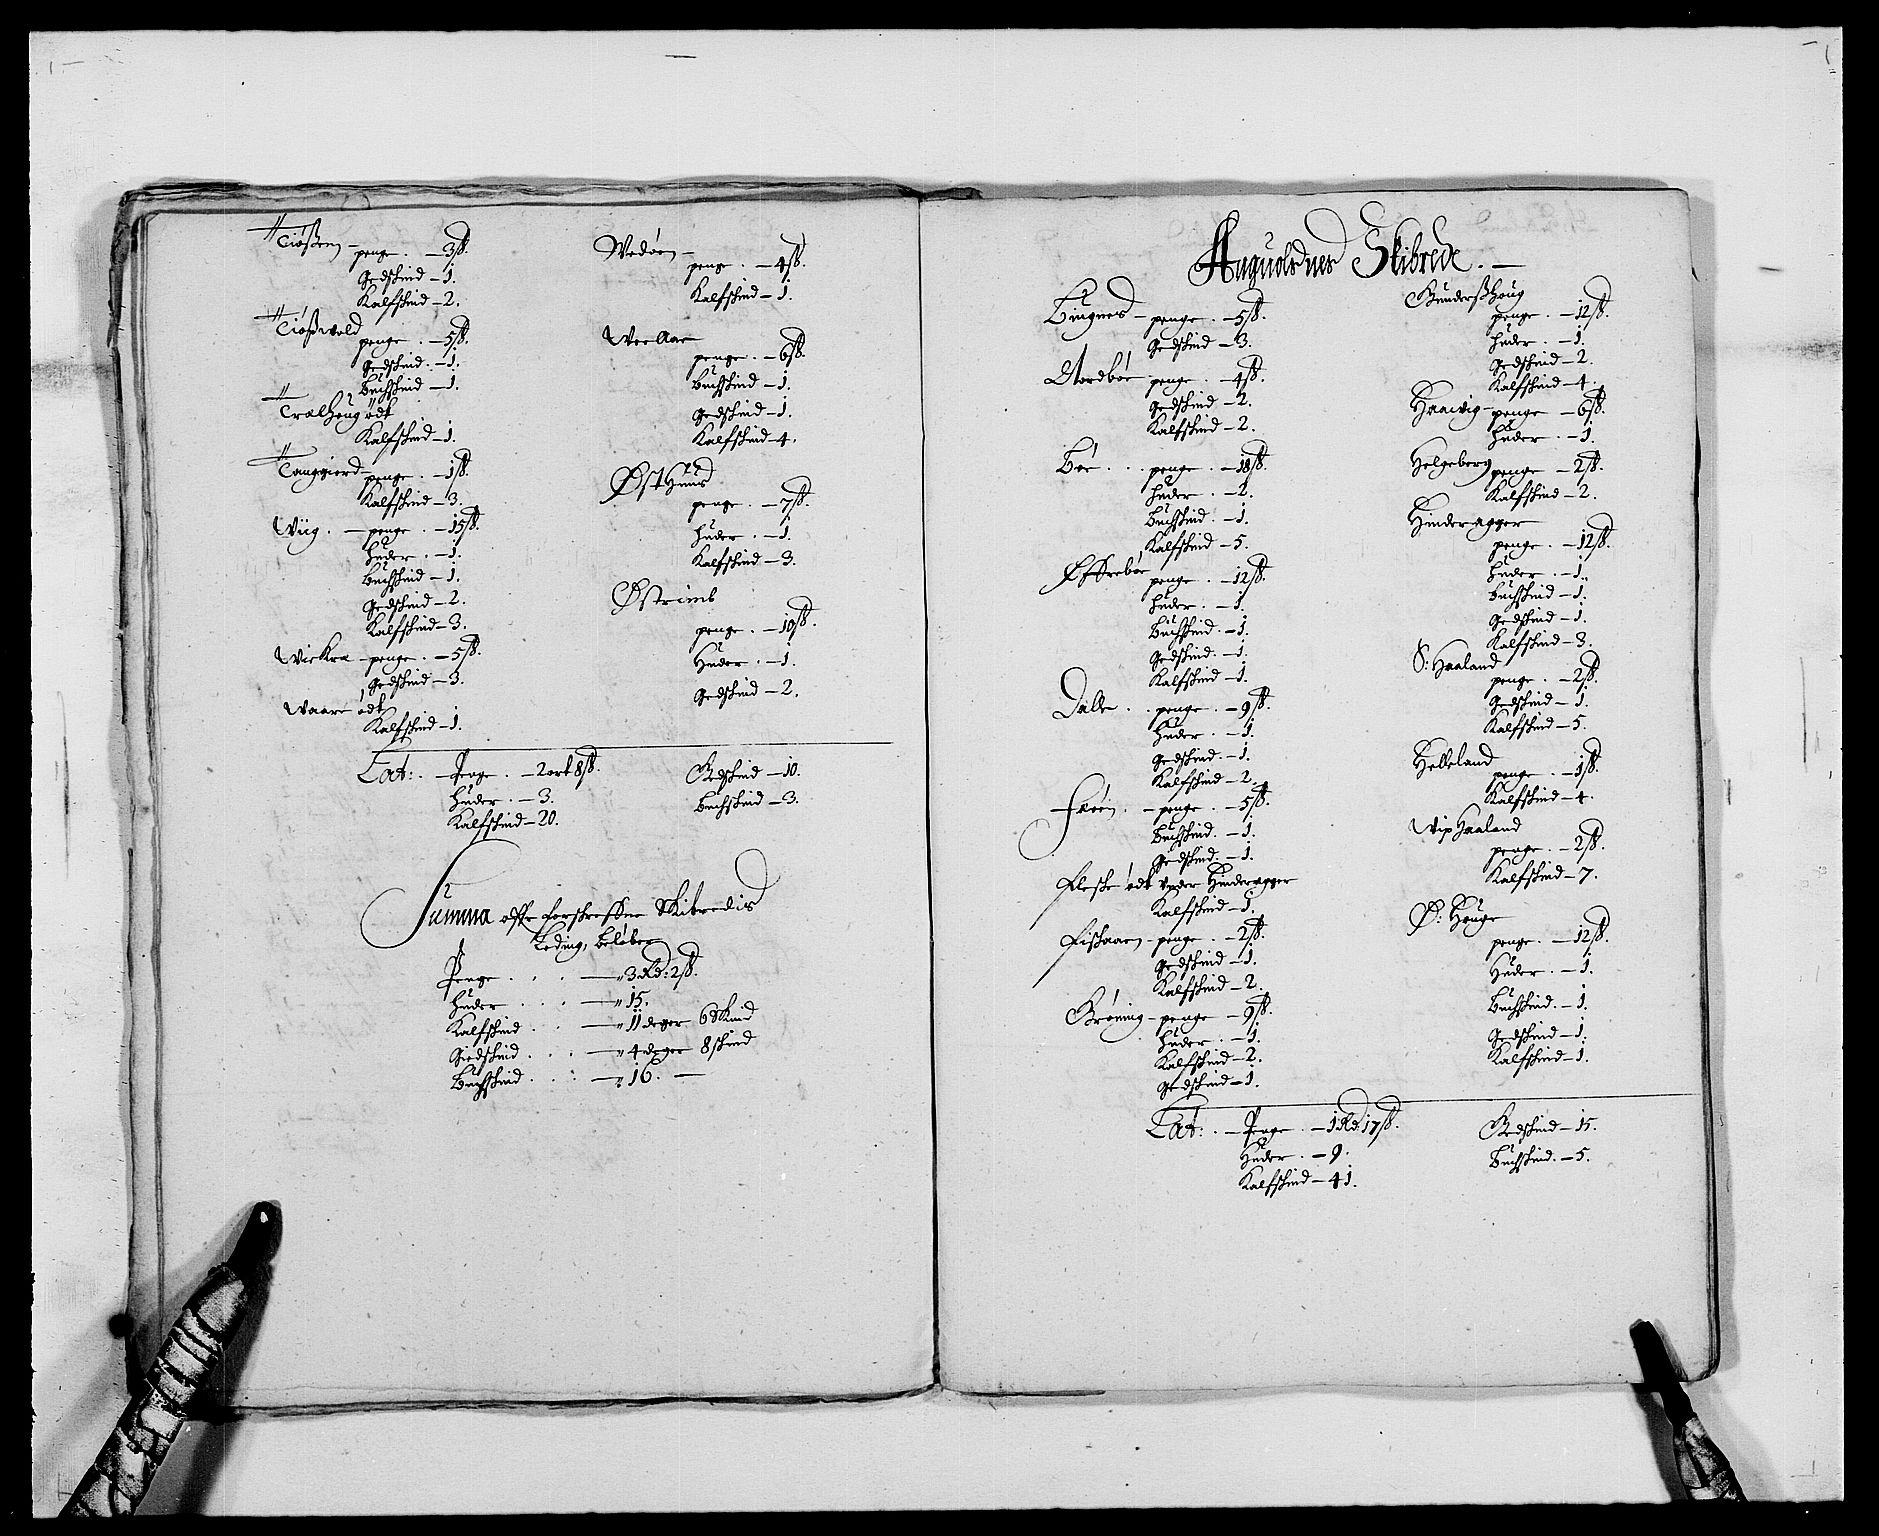 Tiøßem – penge . – 3 ß.
Gedskind – 1.
Kalfskind – 2.
Tiøßwold
penge . – 5 ß.
Gedskind . – 1.
Buchskind – 1.
Tralhoug ödt
Kalfskind – 1.
Tanggierd – penge . – 1 ß.
Kalfskind – 3.
Wiig . – penge . – 15 ß.
Huder . – 1.
Buchskind – 1.
Gedskind – 2.
Kalfskind – 3.
WieKra – penge . – 5 ß.
Gedskind – 3.
Waare ödt
Kalfskind – 1.
Wedøen –
penge . – 4 ß.
Kalfskind – 1.
Wee Aar
penge . – 6 ß.
Buchskind – 1.
Gedskind – 1.
Kalfskind – 4.
ØstHuus
penge . – 7 ß.
Huder . – 1.
Kalfskind – 3.
Østrimb
penge . – 10 ß.
Huder . – 1.
Gedskind – 2.
Lat: . – Penge . – 2 ort 8 ß.
Huder . – 3.
Kalfskind – 20.
Gedskind – 10.
Buchskind – 3.
Summa offr forskreffne Skibredis
Leding, beløber
Penge . . . – 3 Rd: 2 ß.
Huder . . . – 15.
Kalfskind . . – 11 deger 6 Skind
Giedskind . . . – 4 deger 8 skind
Buchskind . . . – 16. –
Auguoldnes Skibrede . –
Bingnes – penge . – 5 ß.
Gedskind – 3.
Nordbøe penge . – 4 ß.
Gedskind – 2.
Kalfskind – 2.
Bøe . . . penge . – 18 ß.
Huder . – 2.
Buchskind . – 1.
Kalfskind – 5.
Effrebøe penge . – 12 ß.
Huder . – 1.
Buchskind . – 1.
Gedskind . – 1.
Kalfskind – 1.
Dalle . . penge . – 9 ß.
Huder . – 1.
Gedskind – 1.
Kalfskind – 2.
Feøen . – penge . – 5 ß.
Buchskind . – 1.
Gedskind . – 1.
Fleske ödt under Hinderagger
Kalfskind – 1.
Fiskaaen – penge . – 2 ß.
Gedskind – 1.
Kalfskind – 2.
Grøning – penge – 9 ß.
Huder . – 1.
Kalfskind – 2.
Gedskind – 1.
Gunderßhoug
penge . – 12 ß.
Huder . – 1.
Gedskind – 2.
Kalfskind – 4.
Haawig – penge – 6 ß.
Huder . – 1.
Helgeberg penge – 2 ß.
Kalfskind – 2.
Hinderagger
penge . – 12 ß.
Huder . – 1.
Buchskind – 1.
Gedskind – 1.
Kalfskind – 3.
S: Haaland
penge . – 2 ß.
Gedskind – 1.
Kalfskind – 5.
Helleland
penge . – 1 ß.
Kalfskind – 4.
Wip Haaland
penge . – 2 ß.
Kalfskind – 7.
Ø: Houge
penge . – 12 ß.
Huder . – 1.
Buchskind . – 1.
Gedskind – 1.
Kalfskind – 1.
Lat: . – Penge . – 1 Rd 17 ß.
Huder . – 9.
Kalfskind – 41.
Gedskind – 15.
Buchskind . – 5.